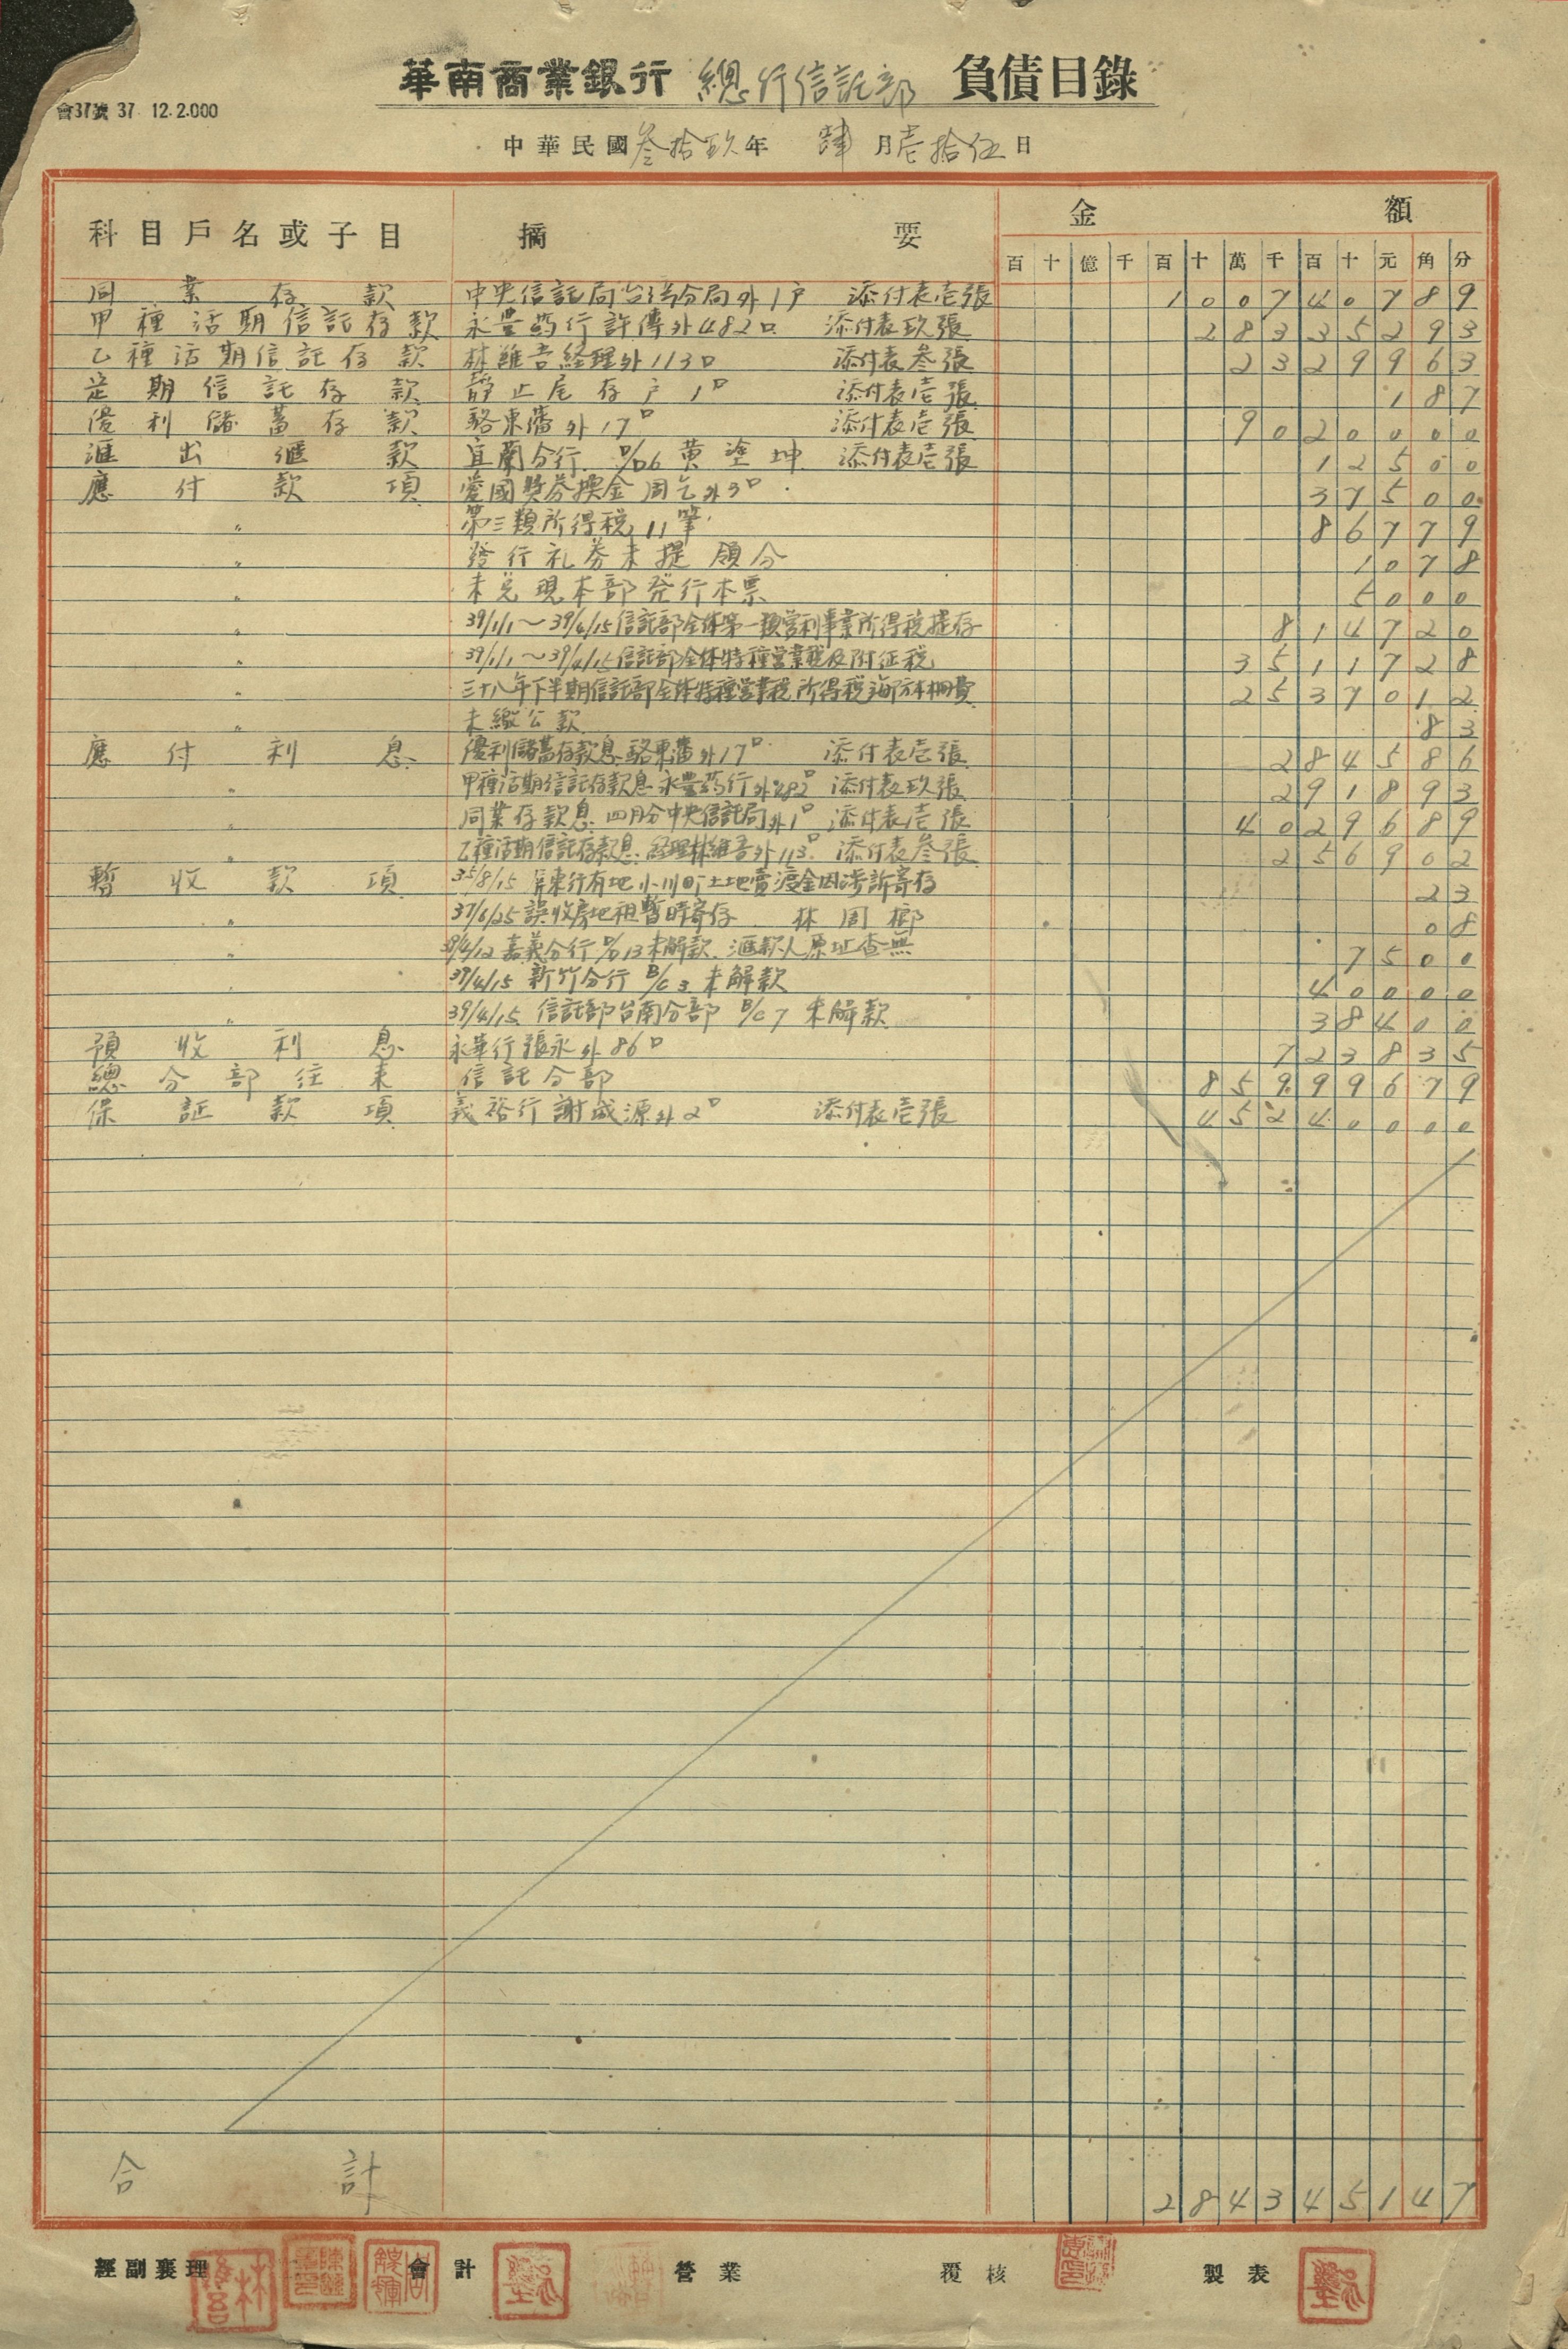 華南商業銀行 總行信託部 負債目錄
會37號 37 12.2.000
中華民國叁拾玖年 肆月壱拾伍日
科目戶名或子目 摘要 金額
百十億千百十萬千百十元角分
同業存款 中央信託局台湾分局外1户 添付表壱張 100740789
甲種活期信託存款 永豊葯行許傳外482口 添付表玖張 28335293
乙種活期信託存款 林維吾経理外113口 添付表叁張 2329963
定期信託存款 靜止尾存户1口 添付表壱張 187
優利儲蓄存款 駱東藩外17口 添付表壱張 9020000
滙出滙款 宜蘭分行 D/D6 黄塗坤 添付表壱張 12500
應付款項 愛國獎券換金 周乞外3口 37500
〃 第三類所得税 11筆 86779
〃 發行礼券未提領分 1078
〃 未兌現本部発行本票 5000
〃 39/1/1～39/4/15信託部全体第一類営利事業所得税提存 814720
〃 39/1/1～39/4/15信託部全体特種営業税及附征税 3511728
〃 三十八年下半期信託部全体特種営業税所得税海防本柵費 2537012
〃 未繳公款 83
應付利息 優利儲蓄存款息 駱東藩外17口 添付表壱張 284586
〃 甲種活期信託存款息 永豊葯行外482口 添付表玖張 291893
〃 同業存款息 四月分中央信託局外1口 添付表壱張 4029689
〃 乙種活期信託存款息 経理林維吾外113口 添付表叁張 256902
暫收款項 35/8/15 屏東行有地小川町土地賣渡金因涉訴寄存 23
〃 37/6/25 誤收房地租暫時寄存 林周榔 08
〃 39/4/12 嘉義分行D/D13未解款 滙款人原址查無 7500
〃 39/4/15 新竹分行 B/C 3 未解款 40000
〃 39/4/15 信託部台南分部 B/C 7 未解款 38400
預收利息 永華行張永外86口 723835
總分部往來 信託分部 85999679
保証款項 義裕行謝成源外2口 添付表壱張 45240000
合計 284345147
經副襄理 會計 營業 覆核 製表